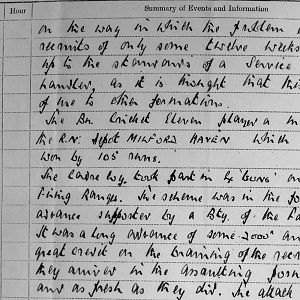 Hour Summary of Events and Information
on the way in which the problem o
recruits of only some twelve weeks
up to the standards of a Service
handled, as it is thought that this
of use to other formations.
The Bn. Cricket Eleven played a m
the R.N. Depot MILFORD HAVEN which
won by 105 runs.
The Coy. took part in
Firing Ranges. The scheme was in the fo
advance supported by a Bty. of the
It was a long advance of some 2000x and
great credit on the training of the recr
they arrived in the assaulting
and as fresh as they did. The attack